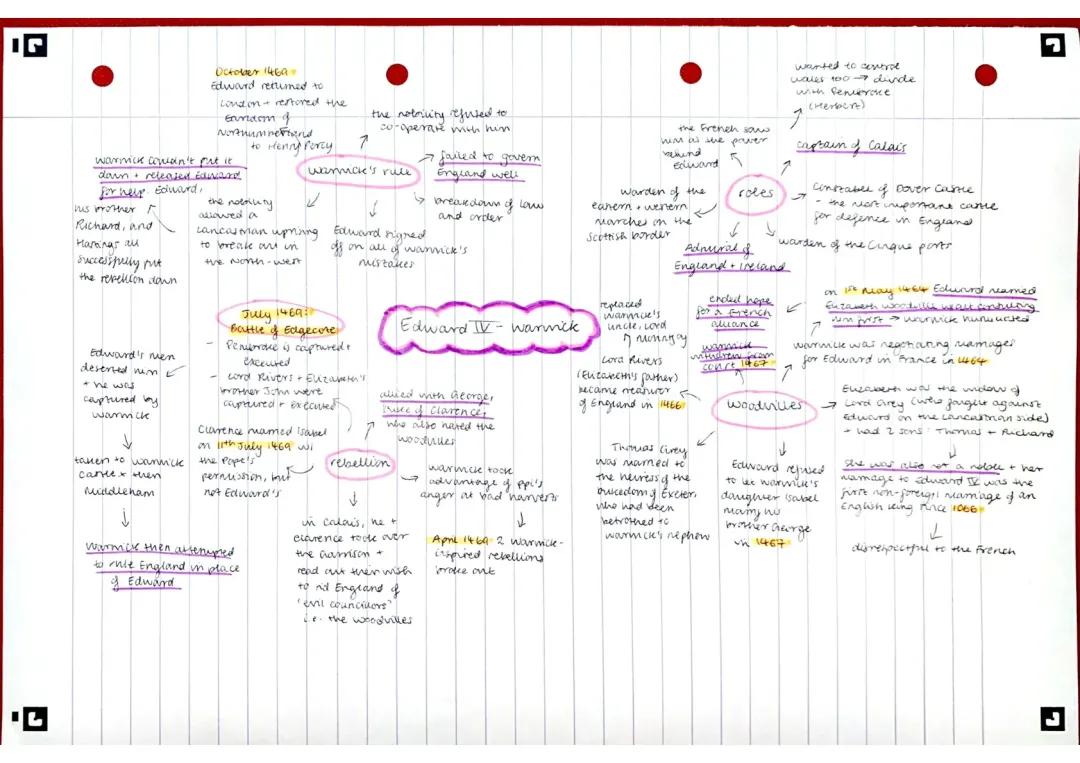 Edward IV - Warwick
October 1469
Edward returned to
London + restored the
Earldom of
Northumberland
to Henry Percy
the nobility refused to
co-operate with him
Warwick couldn't put it
down + released Edward
for help. Edward,
his brother
Richard, and
Hastings all
successfully put
the rebellion down
warwick's rule
failed to govern
England well
breakdown of law
and order
the nobility
allowed a
Lancastrian uprising
to break out in
the North-west
Edward signed
off on all of Warwick's
mistakes
wanted to control
Wales too → divide
with Pembroke
(Herbert)
the French saw
him as the power
behind
Edward
captain of Calais
roles
warden of the
eastern + western
marches on the
Scottish border
Constable of Dover Castle
- the most important castle
for defence in England
Admiral of
England + Ireland
warden of the Cinque ports
July 1469:
Battle of Edgecote
- Pembroke is captured +
executed
- Lord Rivers + Elizabeth's
brother John were
captured + executed
Edward's men
deserted him
+ he was
captured by
Warwick
taken to Warwick
castle + then
Middleham
Warwick then attempted
to rule England in place
of Edward
allied with George,
Duke of Clarence,
who also hated the
Woodvilles
Clarence married Isabel
on 11th July 1469 w/
the Pope's
permission, but
not Edward's
rebellion
warwick took
advantage of ppl's
anger at bad harvests
April 1469 2 Warwick-
inspired rebellions
broke out
in Calais, he +
Clarence took over
the garrison +
read out their wish
to rid England of
'evil councillors'
i.e. the Woodvilles
replaced
Warwick's
uncle, Lord
Mountjoy
Lord Rivers
(Elizabeth's father)
became treasurer
of England in 1466
ended hope
for a French
alliance
warwick
withdrew from
court 1467
on 1st May 1464 Edward married
Elizabeth Woodville w/out consulting
him first → Warwick humiliated
warwick was negotiating marriages
for Edward in France in 1464
woodvilles
Elizabeth was the widow of
Lord Grey (who fought against
Edward on the Lancastrian side)
+ had 2 sons: Thomas + Richard
She was also not a noble + her
marriage to Edward IV was the
first non-foreign marriage of an
English king since 1066
disrespectful to the French
Thomas Grey
was married to
the heiress of the
Dukedom of Exeter,
who had been
betrothed to
Warwick's nephew
Edward refused
to let Warwick's
daughter Isabel
marry his
brother George
in 1467